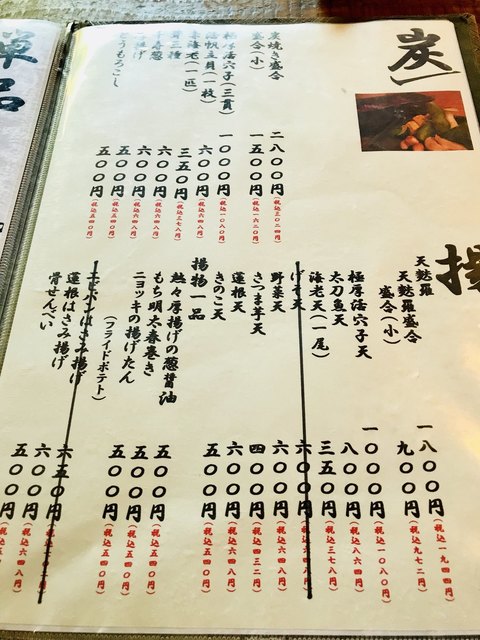 炭
炭焼き盛合 二八〇〇円(税込三〇二四)
盛合(小) 一五〇〇円(税込一六二〇)
極厚活穴子(三貫) 一〇〇〇円(税込一〇八〇)
活帆立貝(一枚) 六〇〇円(税込六四八)
車海老(一匹) 三五〇円(税込三七八)
茸三種 六〇〇円(税込六四八)
千寿葱 六〇〇円(税込六四八)
揚げ 五〇〇円(税込五四〇)
とうもろこし 五〇〇円(税込五四〇)
揚
天麩羅盛合 一八〇〇円(税込一九四四)
天麩羅盛合(小) 九〇〇円(税込九七二)
極厚活穴子天 一〇〇〇円(税込一〇八〇)
太刀魚天 八〇〇円(税込八六四)
海老天(一尾) 三五〇円(税込三七八)
げそ天 六〇〇円(税込六四八)
野菜天 六〇〇円(税込六四八)
さつま芋天 四〇〇円(税込四三二)
蓮根天 六〇〇円(税込六四八)
きのこ天 五〇〇円(税込五四〇)
揚物一品
熱々厚揚げの葱醤油 五〇〇円(税込五四〇)
もち明太春巻き 五〇〇円(税込五四〇)
ニョッキの揚げたん
(フライドポテト) 五〇〇円(税込五四〇)
はさみ揚げ 六五〇円
蓮根はさみ揚げ 六〇〇円(税込六四八)
骨せんべい 五〇〇円
單品